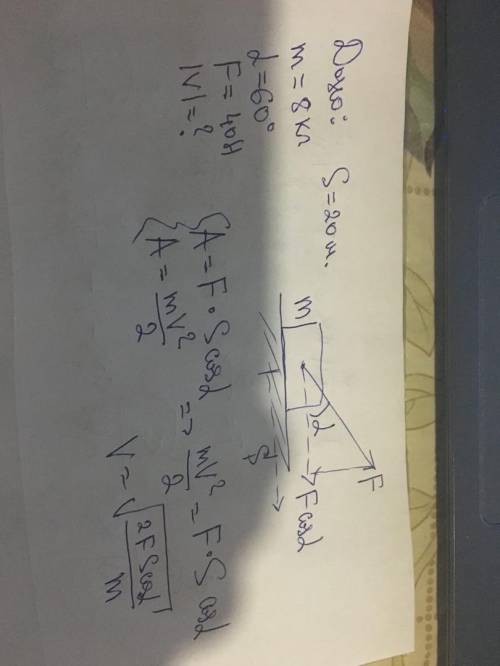 Дано:
m = 8 кг S = 20 м.
α = 60°
F = 40 Н
|V| = ?
m α F
F cos α
S
{ A = F · S cos α
{ A = mV²/2 => mV²/2 = F · S cos α
V = √(2FS cos α / m)